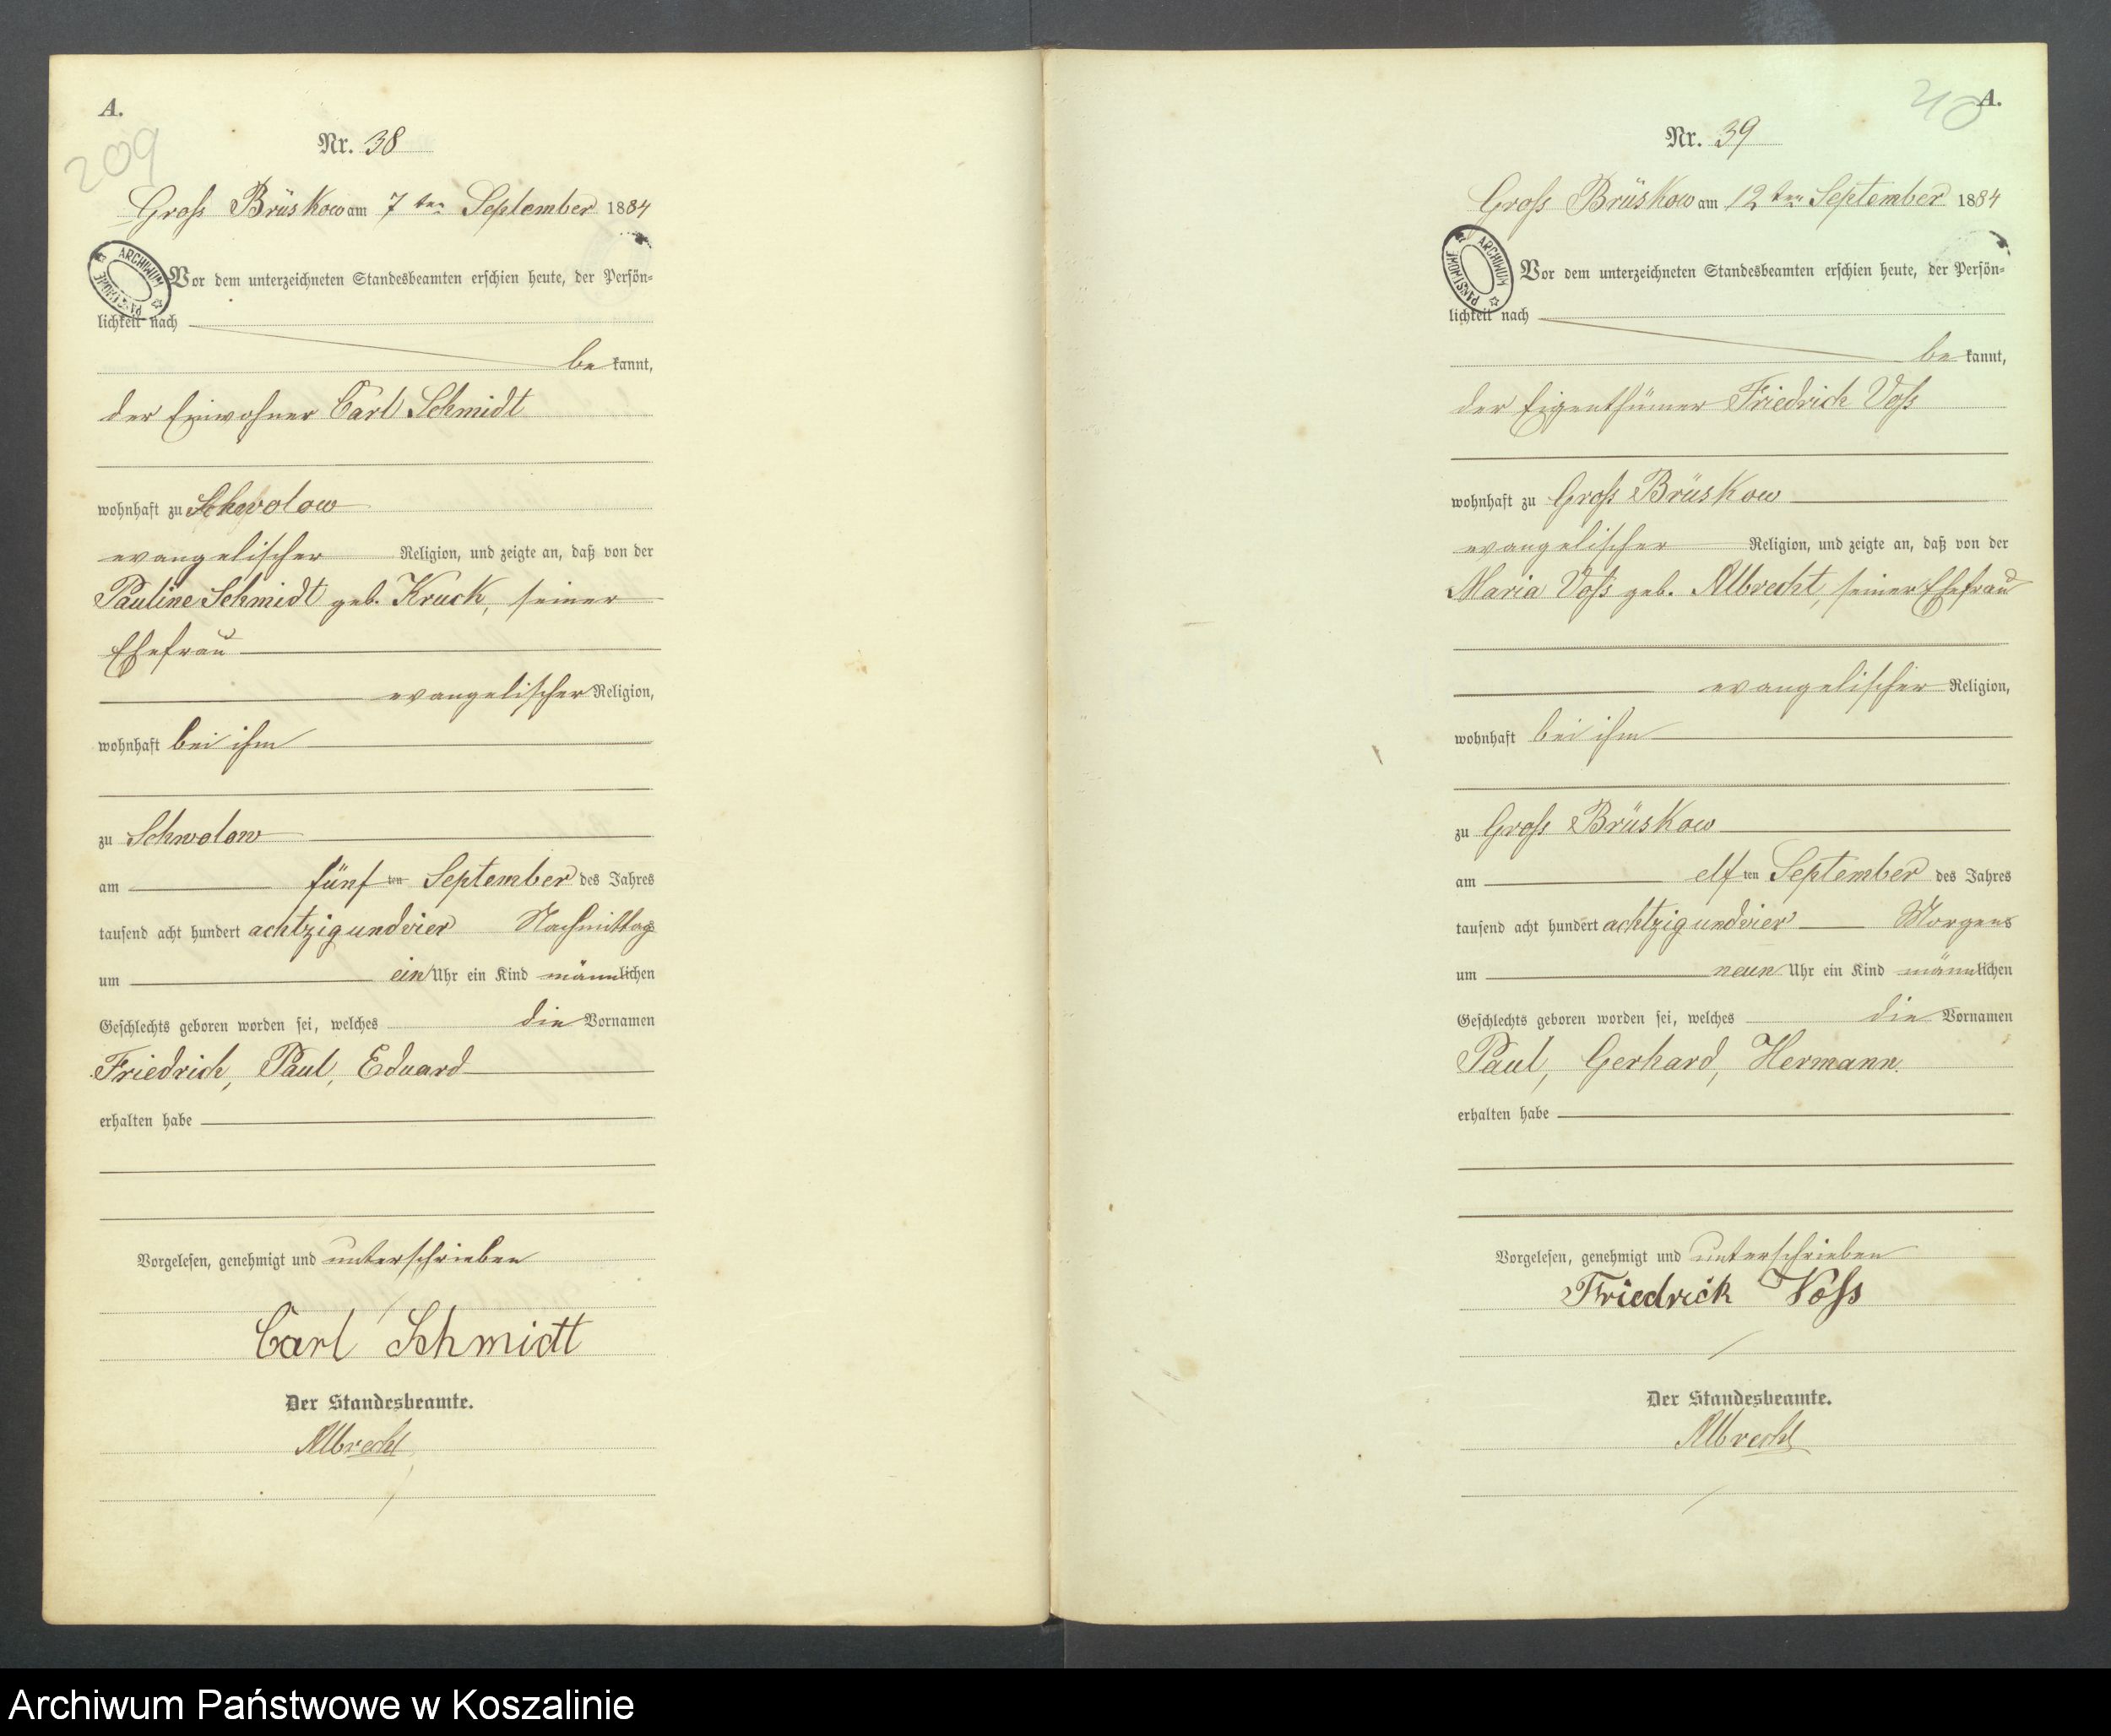 A.
209
Nr. 38
Groß Brüskow am 7ten September 1884
ARCHIWUM PAŃSTWOWE
Vor dem unterzeichneten Standesbeamten erschien heute, der Persön=
lichkeit nach
be kannt,
der Einwohner Carl Schmidt
wohnhaft zu Schwolow
evangelischer Religion, und zeigte an, daß von der
Pauline Schmidt geb. Kruck, seiner
Ehefrau
evangelischer Religion,
wohnhaft bei ihm
zu Schwolow
am fünf ten September des Jahres
tausend acht hundert achtzig und vier Nachmittags
um ein Uhr ein Kind männlichen
Geschlechts geboren worden sei, welches die Vornamen
Friedrich, Paul, Eduard
erhalten habe
Vorgelesen, genehmigt und unterschrieben
Carl Schmidt
Der Standesbeamte.
Albrecht
A.
Nr. 39
Groß Brüskow am 12ten September 1884
ARCHIWUM PAŃSTWOWE
Vor dem unterzeichneten Standesbeamten erschien heute, der Persön=
lichkeit nach
be kannt,
der Eigenthümer Friedrich Voß
wohnhaft zu Groß Brüskow
evangelischer Religion, und zeigte an, daß von der
Maria Voß geb. Albrecht, seiner Ehefrau
evangelischer Religion,
wohnhaft bei ihm
zu Groß Brüskow
am elf ten September des Jahres
tausend acht hundert achtzig und vier Morgens
um neun Uhr ein Kind männlichen
Geschlechts geboren worden sei, welches die Vornamen
Paul, Gerhard, Hermann.
erhalten habe
Vorgelesen, genehmigt und unterschrieben
Friedrick Voß
Der Standesbeamte.
Albrecht
Archiwum Państwowe w Koszalinie